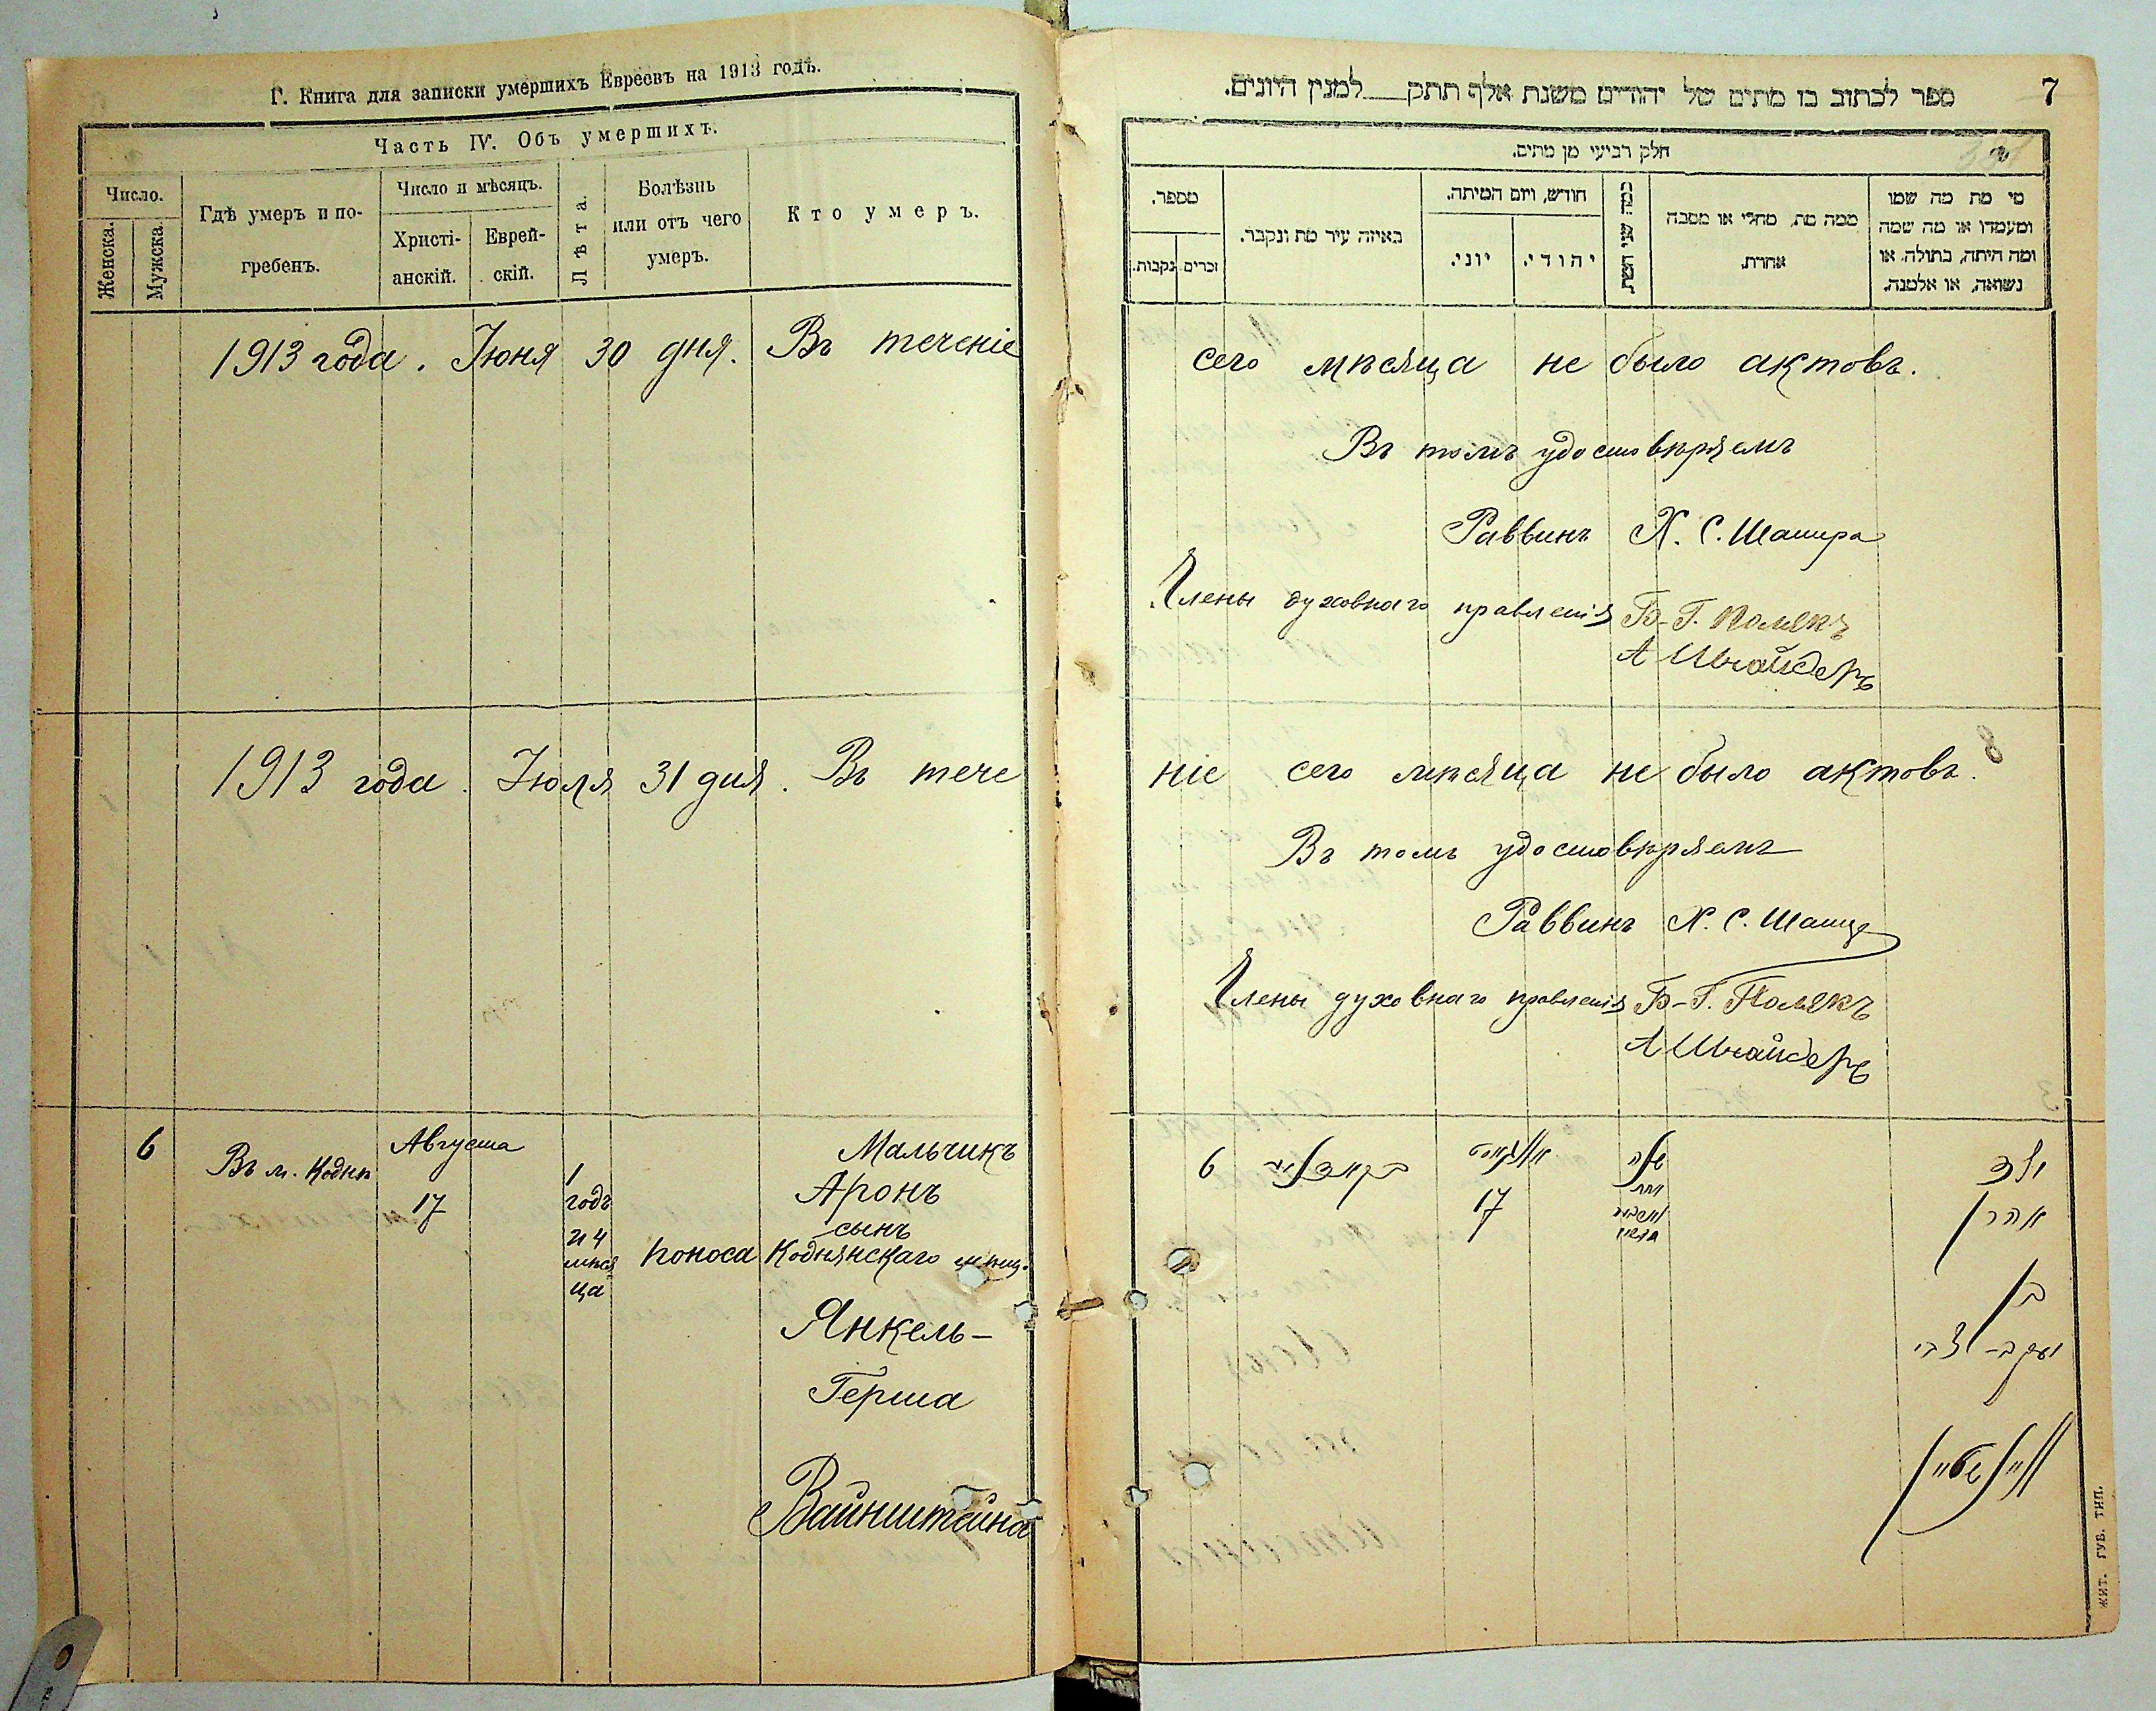 Г. Книга для записки умершихъ Евреевъ на 1913 годъ.
Часть IV. Объ умершихъ.
Число.
Женска.
Мужска.
Гдѣ умеръ и по-
гребенъ.
Число и мѣсяцъ.
Христі-
анскій.
Еврей-
скій.
Лѣта.
Болѣзнь
или отъ чего
умеръ.
Кто умеръ.
1913 года. Іюня 30 дня. Въ теченіе
1913 года. Іюля 31 дня. Въ тече
6
Въ м. Коднѣ
Августа
17
1
годъ
и 4
мѣся
ца
поноса
Мальчикъ
Аронъ
сынъ
Коднянскаго мѣщ.
Янкель-
Герша
Вайнштейна
ספר לכתוב בו מתים של יהודים משנת אלף תתק למנין היונים.
7
חלק רביעי מן מתים.
מספר.
זכרים
נקבות.
באיזה עיר מת ונקבר.
חודש, ויום המיתה.
יהודי.
יוני.
כמה שני המת.
ממה מת, מחלי או מסבה
אחרת.
מי מת מה שמו
ומעמדו או מה שמה
ומה היתה, בתולה או
נשואה, או אלמנה.
сего мѣсяца не было актовъ.
Въ томъ удостовѣряемъ
Раввинъ Х. С. Шапира
Члены духовнаго правленія Б-Г. Полякъ
А Шнайдеръ
8
ніе сего мѣсяца не было актовъ.
Въ томъ удостовѣряемъ
Раввинъ Х. С. Шапира
Члены духовнаго правленія Б-Г. Полякъ
А Шнайдеръ
6
אויגוסט
17
שנה
ילד
אהרן
בן
יעקב-צבי
וויינשטיין
ЖИТ. ГУБ. ТИП.